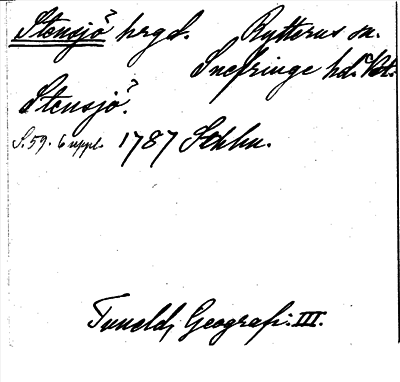 Stensjö hrgd. Rytterns sn.
Snefringe hd. Vtl.
Stensjö.
S. 59. 6 uppl. 1787 Sthlm.
Tuneld, Geografi. III.